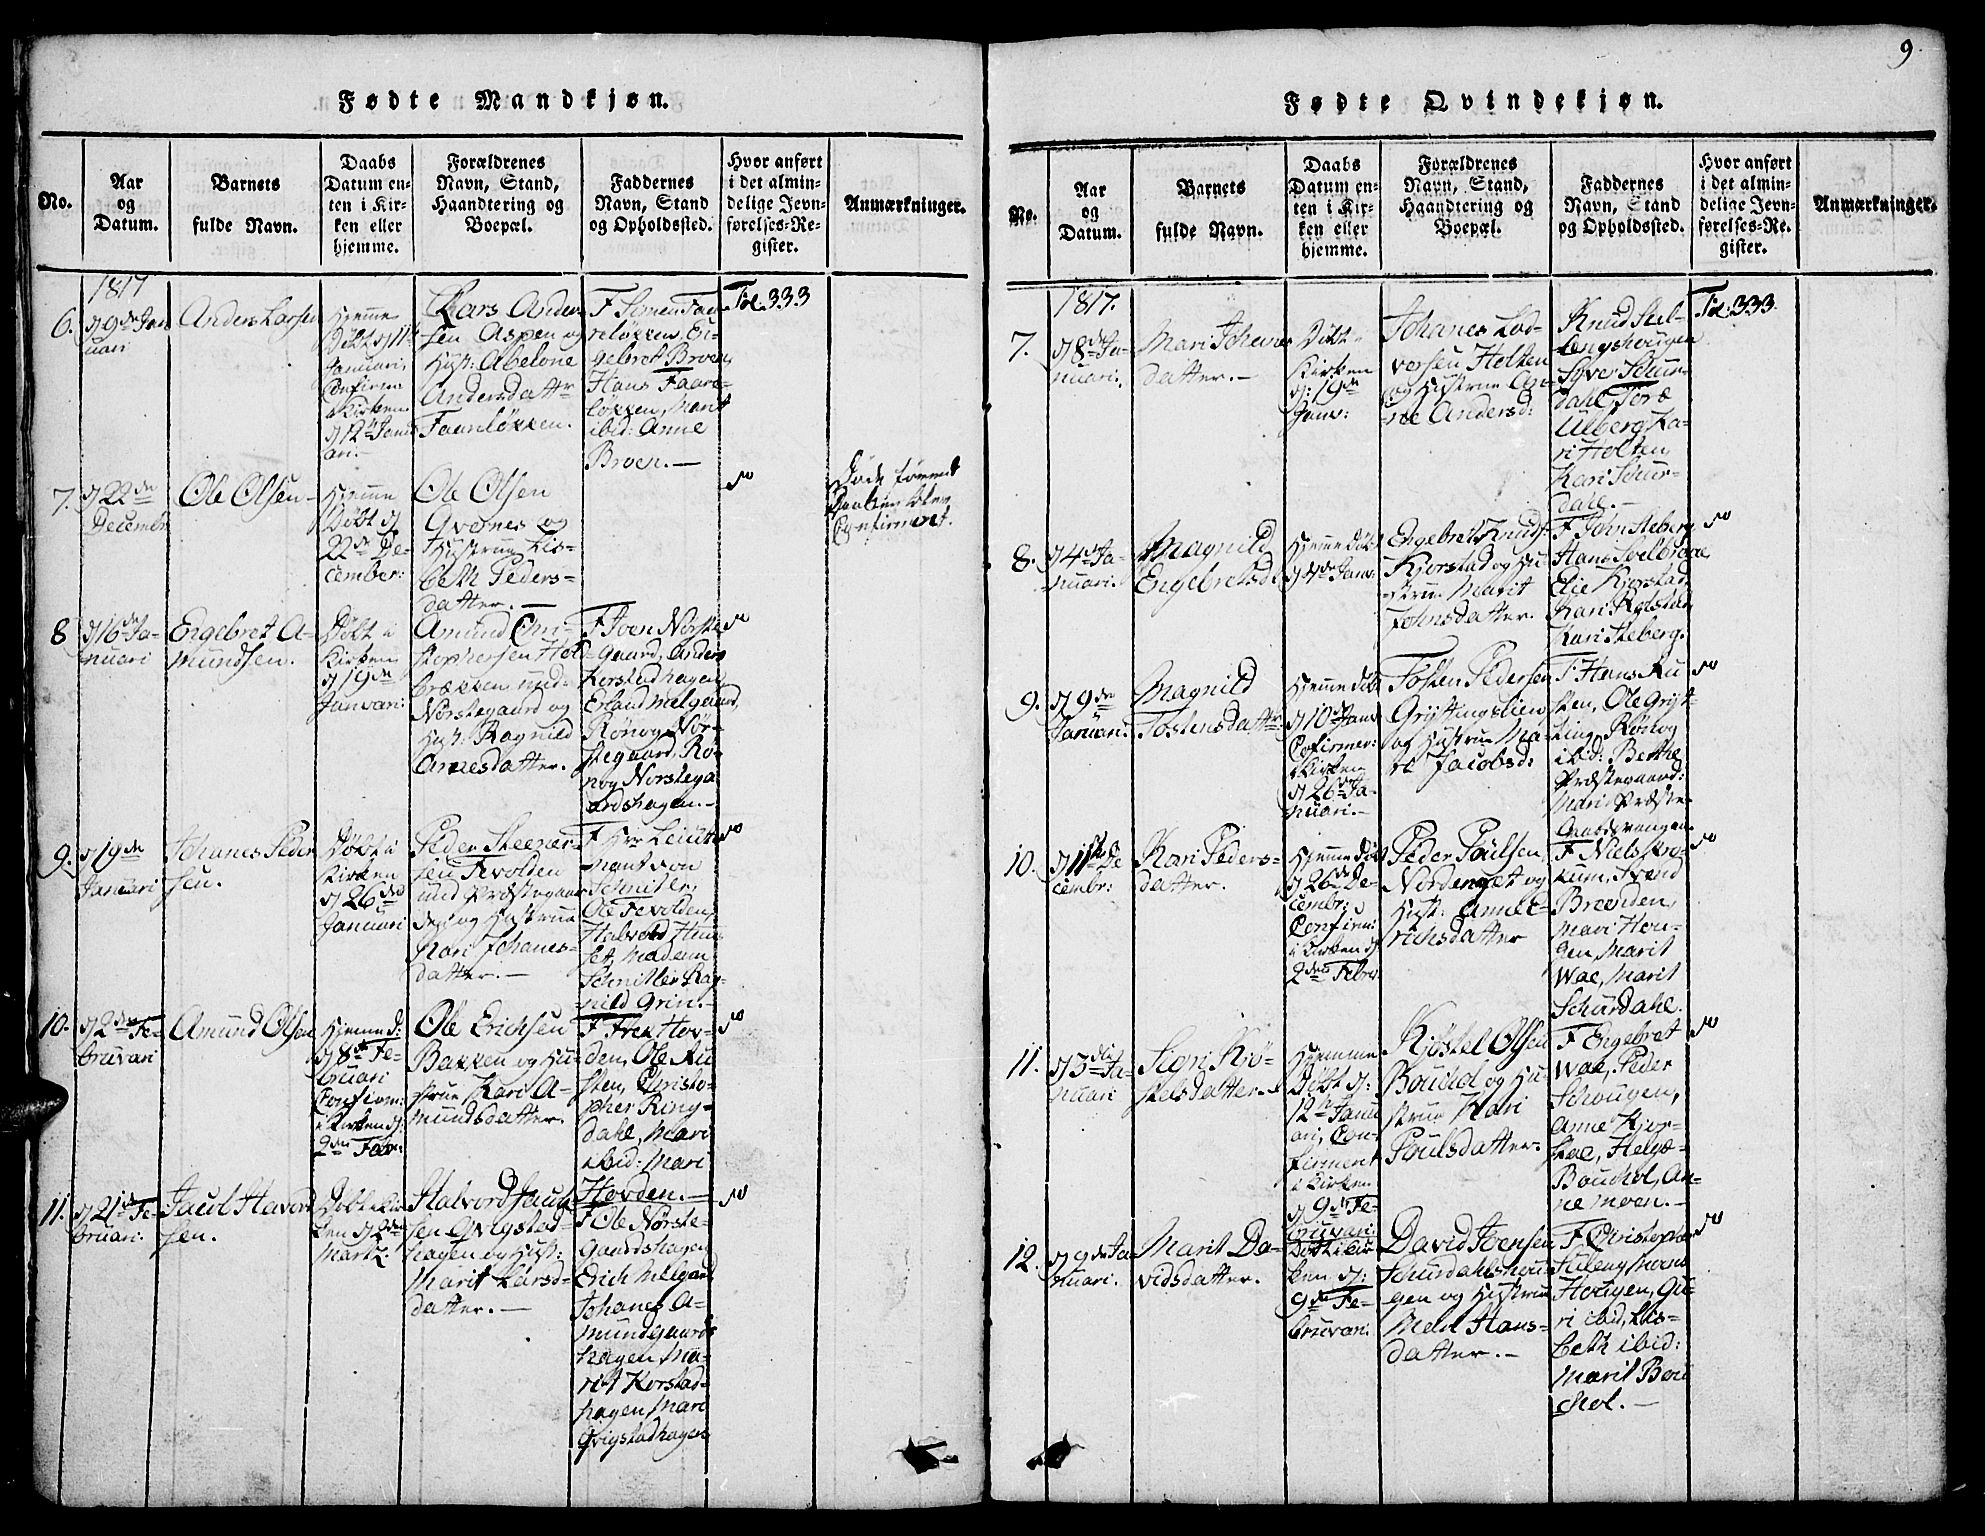 9.
Fødte Mandkjøn.
No.
Aar
og
Datum.
Barnets
fulde Navn.
Daabs
Datum en-
ten i Kir-
ken eller
hjemme.
Forældrenes
Navn, Stand,
Haandtering og
Boepæl.
Faddernes
Navn, Stand
og Opholdssted.
Hvor anført
i det almin-
delige Jevn-
førelses-Re-
gister.
Anmærkninger.
1817
6.
d 9de Jan
uari
Anders Larsen
Hjemme
Døbt d 11te
Januari,
Confirm
i Kirken
d 12te Janu
ari.-
Lars Ander
sen Aspen og
Hust: Abelone
Andersdattr
Faareløkken.
F Simen Faa-
reløkken, En-
gebret Broen,
Hans Faare-
løkken, Marit
ibid: Anne
Broen.-
Fol. 333
7.
d 22de
Decembr
Ole Olsen-
Hjemme
Døbt d
22de De-
cember:
Ole Olsen
Qvernes og
Hustrue Lis-
beth Peders-
datter.-
Døde førend
Daaben blev
Confirmeret.
8
d 16de Ja-
nuari
Engebret A-
mundsen.
Døbt i
Kirken
d 19de
Januari:
Amund Chri-
stophersen Hol-
brækken und:
Norstegaard og
Hust: Ragnild
Arnesdatter.
F Joen Norste
gaard, Anders
Korstadhagen
Erland Melgaard,
Rønog Nor-
stegaard, Rø-
nog Norstega
ardshagen.-
9.
d 19de
Januari
Johanes Peder
sen.
Døbt i
Kirken
d 26de
Januari
Peder Steener-
sen Tevolden
und Præstegaar
den og Hustrue
Kari Johanes-
datter.-
F Hr Leiut-
nant von
Schnitler,
Ole Tevolden,
Halvord Hun
set, Madem
Schnitler Rag-
nild Grin.-
10.
d 2de Fe-
bruvari
Amund Olsen
Hjemme d:
d 8de Fe-
bruari
Confirm:
i Kirken d.
2den Febr:
Ole Erichsen
Bakken og Hu-
strue Kari A-
mundsdatter.
F Frex Hov-
den, Ole Ru
sten, Christo-
pher Ring-
dahl, Mari
ibid: Mari
Hovden.-
11.
d 21de Fe-
bruari.
Paul Havord
sen.
Døbt i Kir
ken d 2den
Martz.
Halvord Paul
sen Qvigstad-
hagen og Hust:
Marit Larsd-
datter.-
F Ole Nørste-
gaardshagen
Erich Melgard
Johanes A-
mundgaards
hagen, Ma-
rit Korstad-
hagen, Mari
Qvigstadhagen
Fødte Qvindekjøn.
No.
Aar
og
Datum.
Barnets
fulde Navn.
Daabs
Datum en-
ten i Kir-
ken eller
hjemme.
Forældrenes
Navn, Stand,
Haandtering og
Boepæl.
Faddernes
Navn, Stand
og Opholdssted.
Hvor anført
i det almin-
delige Jevn-
førelses-Re-
gister.
Anmærkninger.
1817.
7.
d 8de Ja-
nuari.
Mari Johanes
datter.-
Døbt
Kirken
d: 19de
Janv:
Johanes Lod-
versen Holten
og Hustrue An-
ne Andersd:
Knud Stel-
engshougen
Syver Schur-
dahl, Toræ
Ulberg Ka-
ri Holten
Kari Schur-
dahl.-
Fol: 333.
8.
d 4de Ja-
nuari.
Magnild
Engebretsd:
Hjemme døbt
d 4de Janv:
Engebret Knuds:
Kjorstad og Hu-
strue Marit
Johnsdatter.
F John Steberg
Elie Kjorstad
Kari Steberg.
9.
d 9de
Januari.
Magnild
Tostensdattr.
Hjemme døbt
d 10de Janv
Cofirmer:
i Kirken
d 26de Ja-
nuari.-
Tosten Pedersen
Gryttingslien
og Hustrue Ma-
ri Jacobsd:
F Hans Ru
sten, Ole Gryt-
ting, Rønog
ibid: Berthe
Præstegaard:
Mari Præste-
10.
d 11te De
cembr:
Kari Peders-
datter.
Hjemme døbt
d 26de De-
cembr:
Confirm:
i Kirken d
2den Febr.
Peder Poulsen,
Nordenget og
Hust: Anne E-
richsdatter
F Niels Kro-
kum, Svend
Brænden,
Mari Hou-
gen, Marit
Wae, Marit
Schurdahl.
11.
d 3die Ja-
nuari
Sigri Kjø-
stelsdatter.
Hjemme
Døbt d:
12te Janu
ari, Con-
firmeret
i Kirken
d 9de Fe-
bruvari.
Kjøstel Olsen
Bouchol og Hu-
strue Kari
Poulsdatter.
F Engebret
Wae, Peder
Schougen,
Anne Kjor-
stae, Helgæ
Bouchol, An-
ne Moen.-
12.
d 9de Ja-
nuari.
Marit Da-
vidsdatter.
Døbt i Kir
ken d:
9de Fe-
bruvari.
David Joensen
Schurdahlshou-
gen og Hustrue
Mehl Hans-
datter.-
F Christopher
Hougen, Gu-
ri ibid, Lis-
beth ibid:
Marit Bou
chol.-